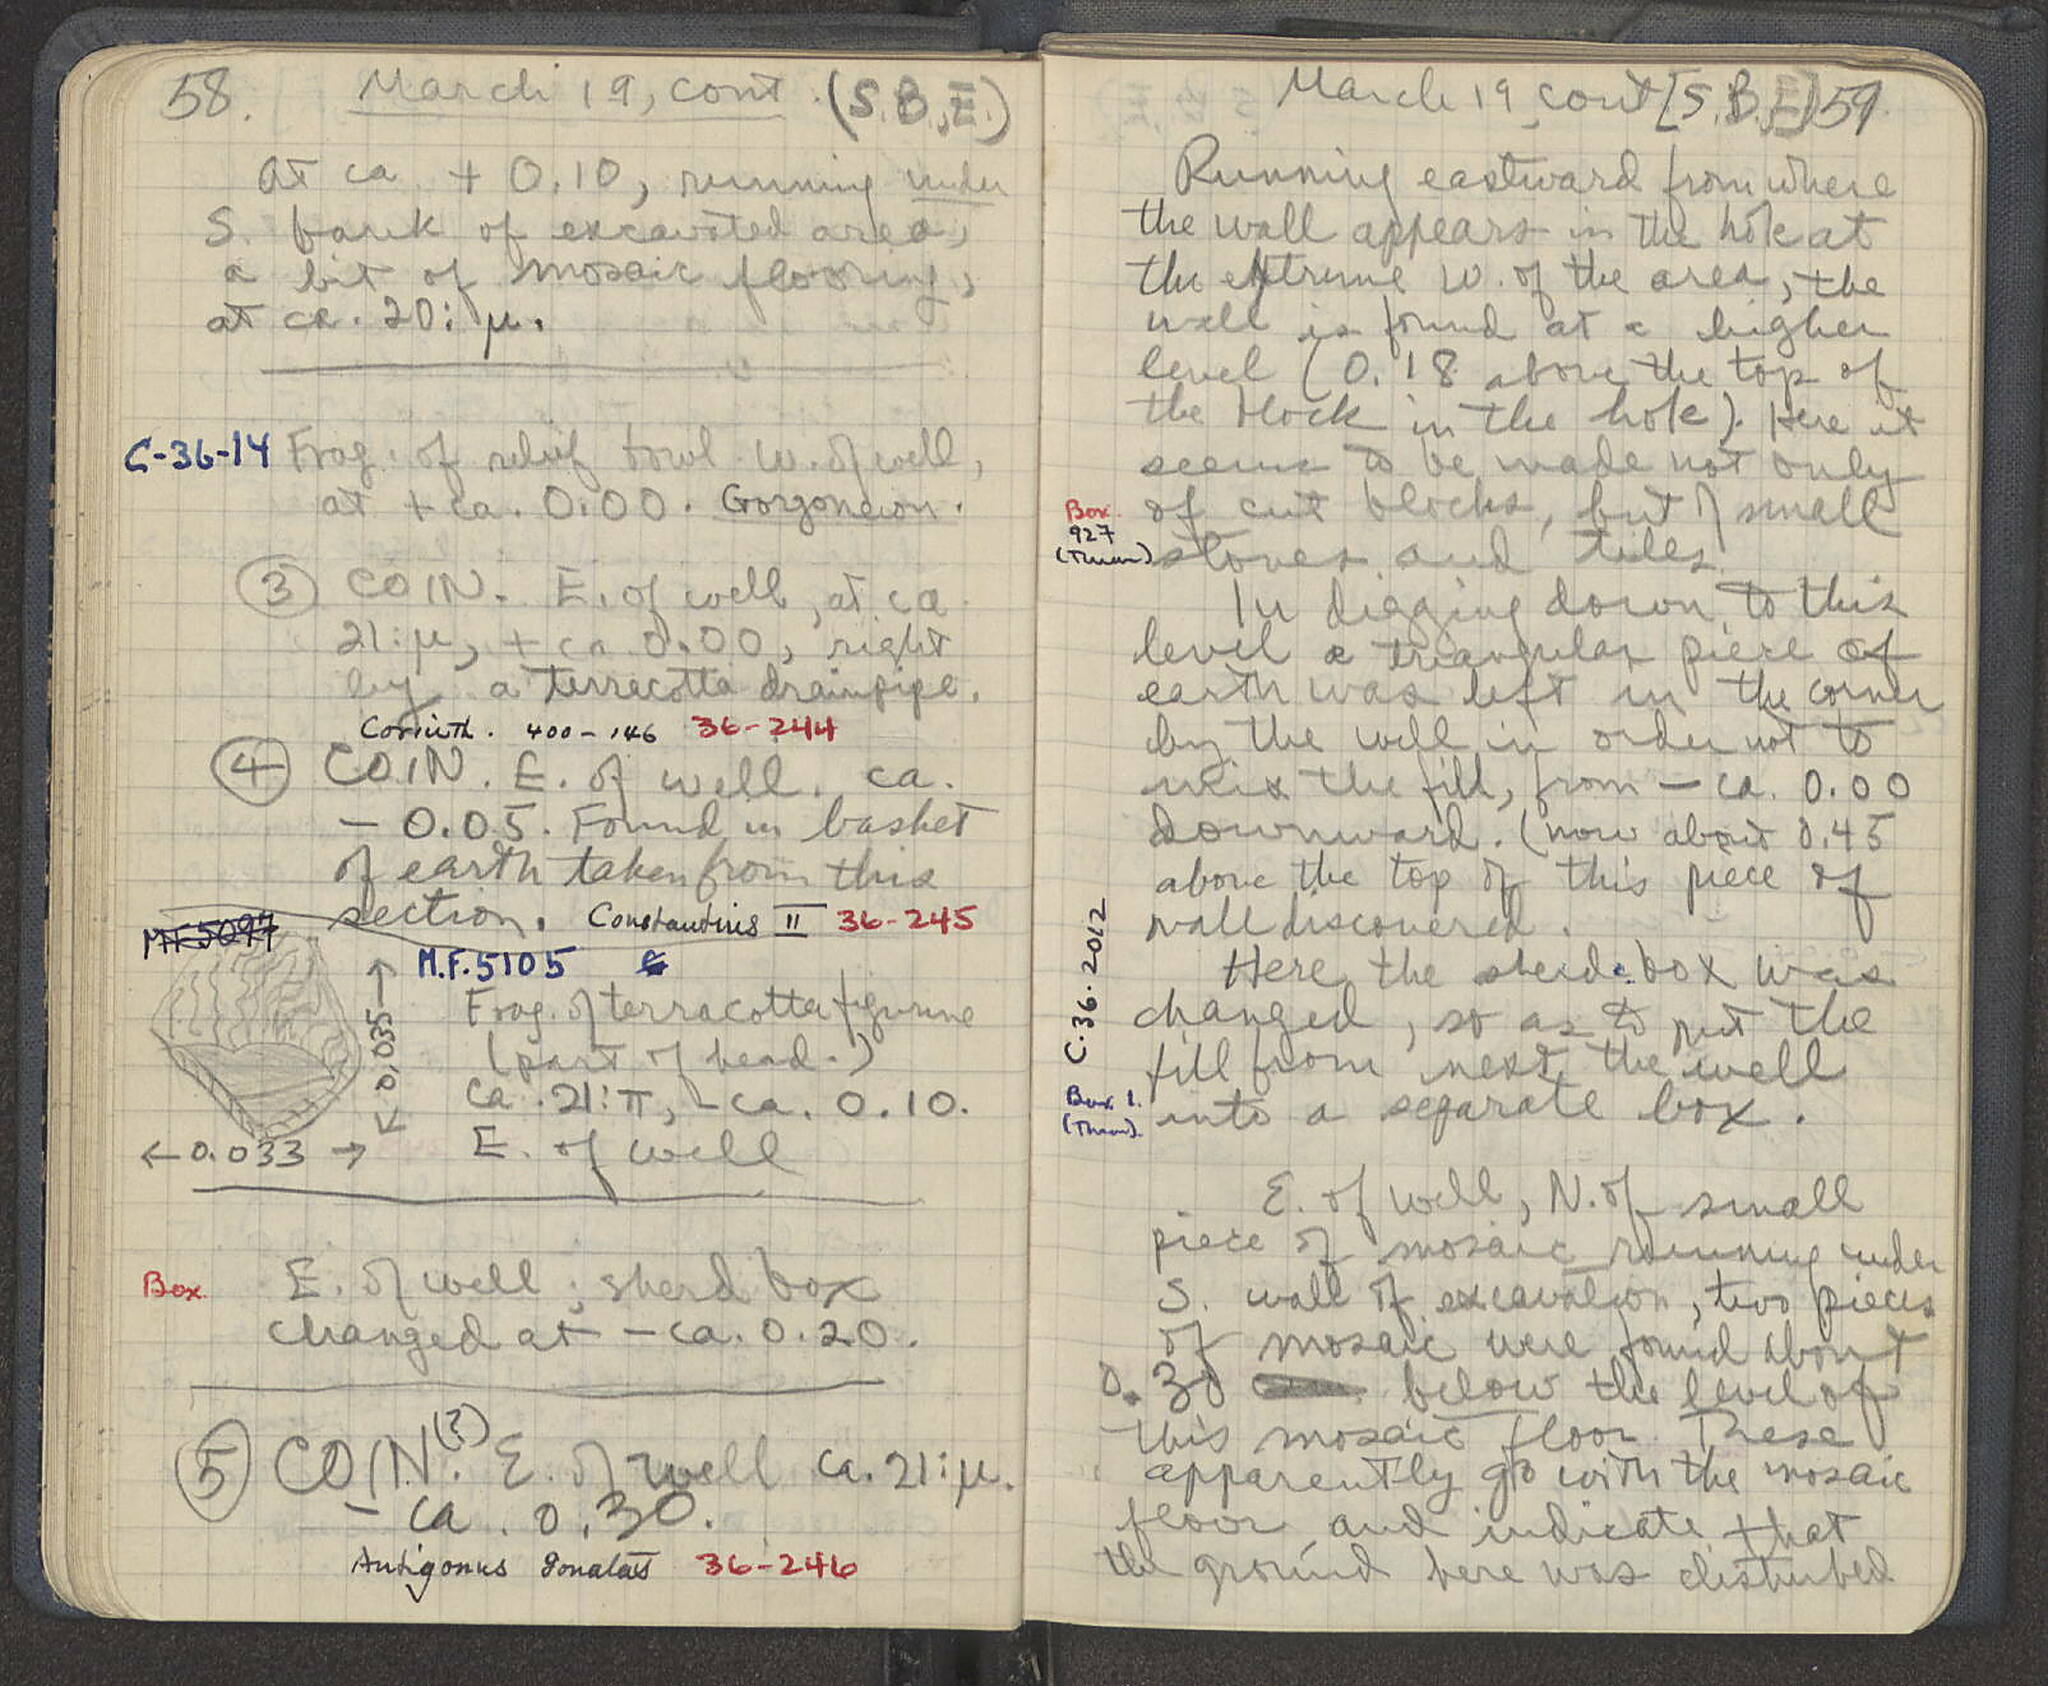 58. March 19, cont. (S.B.,E.)
At ca. + 0.10, running under
S. bank of excavated area,
a bit of mosaic flooring,
at ca. 20:μ.
C-36-14 Frag. of relief bowl W. of well,
at + ca. 0.00. Gorgoneion.
3 COIN. E. of well, at ca
21:μ, + ca. 0.00, right
by a terracotta drainpipe.
Corinth. 400-146 36-244
4 COIN. E. of well. ca.
- 0.05. Found in basket
of earth taken from this
section. Constantius II 36-245
MF 5097
M.F. 5105
Frag. of terracotta figurine
(part of head.)
ca. 21:π, - ca. 0.10.
E. of well
↑ 0.035 ↓
← 0.033 →
Box E. of well; sherd box
changed at - ca. 0.20.
5 COIN(?). E. of well ca. 21:μ.
- ca. 0.30.
Antigonus Gonatas 36-246
March 19, cont [S.B.,E.] 59
Running eastward from where
the wall appears in the hole at
the extreme W. of the area, the
wall is found at a higher
level (0.18 above the top of
the block in the hole). Here it
seems to be made not only
of cut blocks, but of small
stones and tiles.
Box
927
(Thrown)
In digging down to this
level a triangular piece of
earth was left in the corner
by the well in order not to
mix the fill, from - ca. 0.00
downward. (now about 0.45
above the top of this piece of
wall discovered.
Here the sherd-box was
changed, so as to put the
fill from next the well
into a separate box.
C.36.2012
Box 1.
(Thrown).
E. of well, N. of small
piece of mosaic running under
S. wall of excavation, two pieces
of mosaic were found about
0.30 below the level of
this mosaic floor. These
apparently go with the mosaic
floor and indicate that
the ground here was disturbed